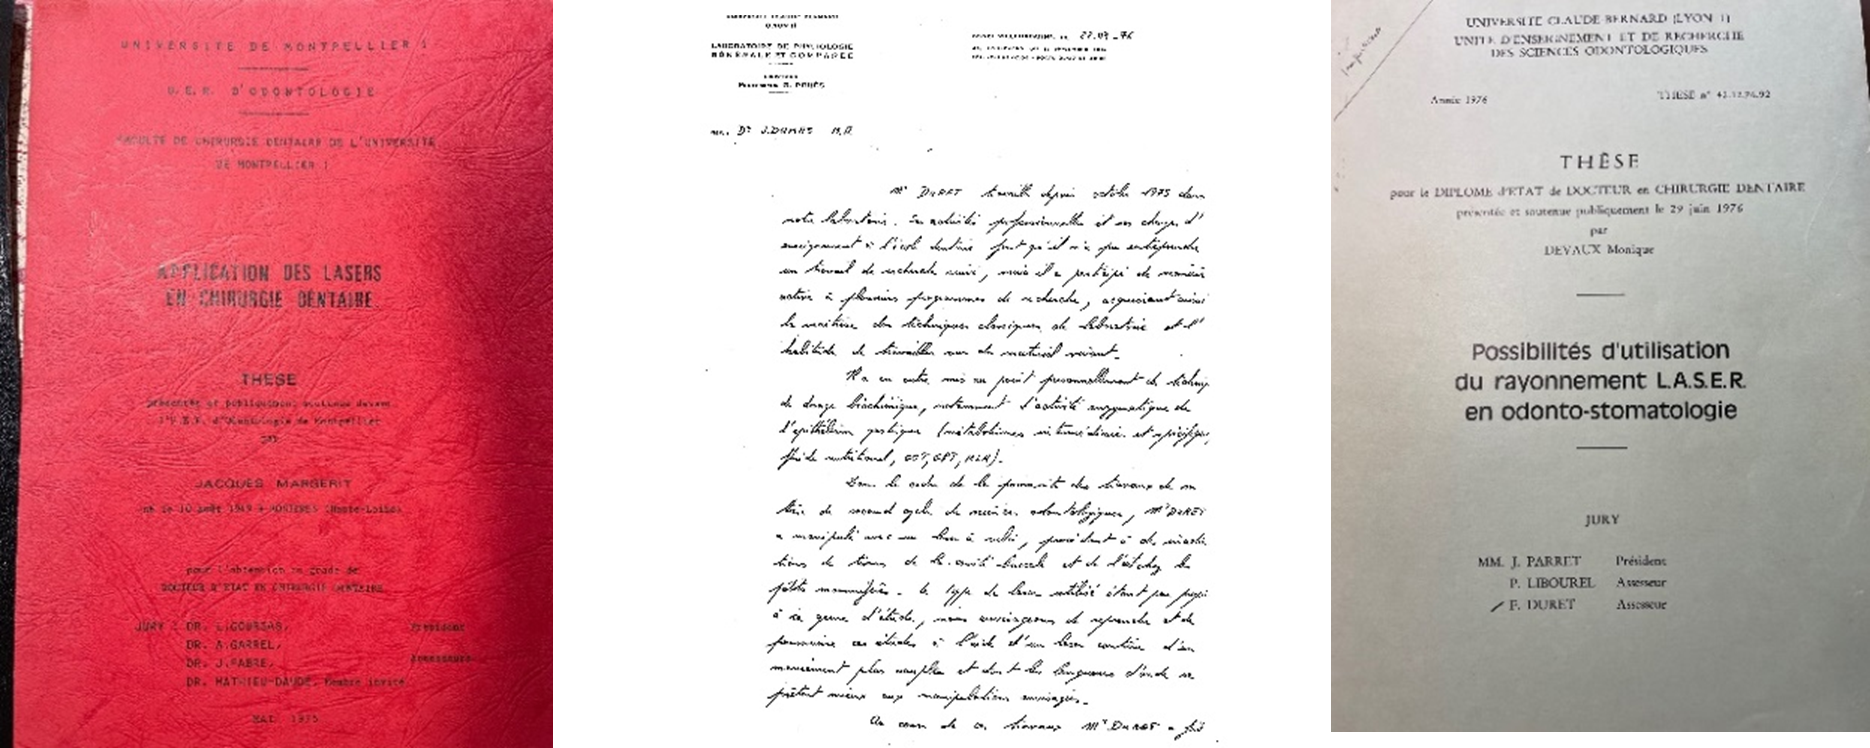 UNIVERSITE DE MONTPELLIER 1
U.E.R. D'ODONTOLOGIE
FACULTE DE CHIRURGIE DENTAIRE DE L'UNIVERSITE
DE MONTPELLIER 1
APPLICATION DES LASERS
EN CHIRURGIE DENTAIRE
THESE
présentée et publiquement soutenue devant
l'U.E.R. d'Odontologie de Montpellier
par
JACQUES MARGERIT
né le 10 août 1949 à (Haute-Loire)
pour l'obtention du grade de
DOCTEUR D'ETAT EN CHIRURGIE DENTAIRE
JURY : DR. L. GOURSAS, Président
DR. A. GARREL,
DR. J. FABRE, Assesseurs
DR. MATHIEU-DAUDE, Membre invité
MAI 1975
LABORATOIRE DE PHYSIOLOGIE
GÉNÉRALE ET COMPARÉE
22.09.76
Dr J. DUMAS M.A.
Mr DURET travaille depuis octobre 1975 dans
notre laboratoire. Ses activités professionnelles et sa charge d'
enseignement à l'école dentaire font qu'il n'a pu entreprendre
un travail de recherche suivi, mais il a participé de manière
active à plusieurs programmes de recherche, acquiérant ainsi
la maîtrise des techniques classiques de laboratoire et l'
habitude de travailler sur du matériel vivant.
Il a en outre mis au point personnellement des
de dosage biochimique, notamment l'activité enzymatique de
l'épithélium gastrique (métabolismes intermédiaires et spécifiques,
Dans le cadre de la poursuite des travaux de sa
thèse de second cycle de sciences odontologiques, Mr DURET
a manipulé avec un laser à rubis, procédant à des
tions de tissus de la cavité buccale et de l'état chez les
petits mammifères. Le type de laser utilisé étant peu
à ce genre d'étude, nous envisageons de reprendre et de
poursuivre ces études à l'aide d'un laser continu d'un
maniement plus souple et dont les longueurs d'onde se
prêtent mieux aux manipulations envisagées.
Au cours de ces travaux Mr DURET a
UNIVERSITE CLAUDE BERNARD (LYON 1)
UNITE D'ENSEIGNEMENT ET DE RECHERCHE
DES SCIENCES ODONTOLOGIQUES
Année 1976 THESE n° 42.12.76.92
THÈSE
pour le DIPLOME d'ETAT de DOCTEUR en CHIRURGIE DENTAIRE
présentée et soutenue publiquement le 29 juin 1976
par
DEVAUX Monique
Possibilités d'utilisation
du rayonnement L.A.S.E.R.
en odonto-stomatologie
JURY
MM. J. PARRET Président
P. LIBOUREL Assesseur
F. DURET Assesseur